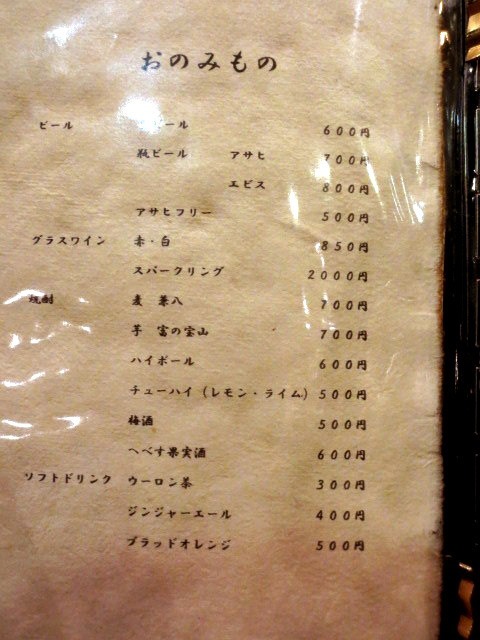 おのみもの
ビール ール 600円
瓶ビール アサヒ 700円
エビス 800円
アサヒフリー 500円
グラスワイン 赤・白 850円
スパークリング 2000円
焼酎 麦 兼八 700円
芋 富の宝山 700円
ハイボール 600円
チューハイ（レモン・ライム） 500円
梅酒 500円
へべす果実酒 600円
ソフトドリンク ウーロン茶 300円
ジンジャーエール 400円
ブラッドオレンジ 500円